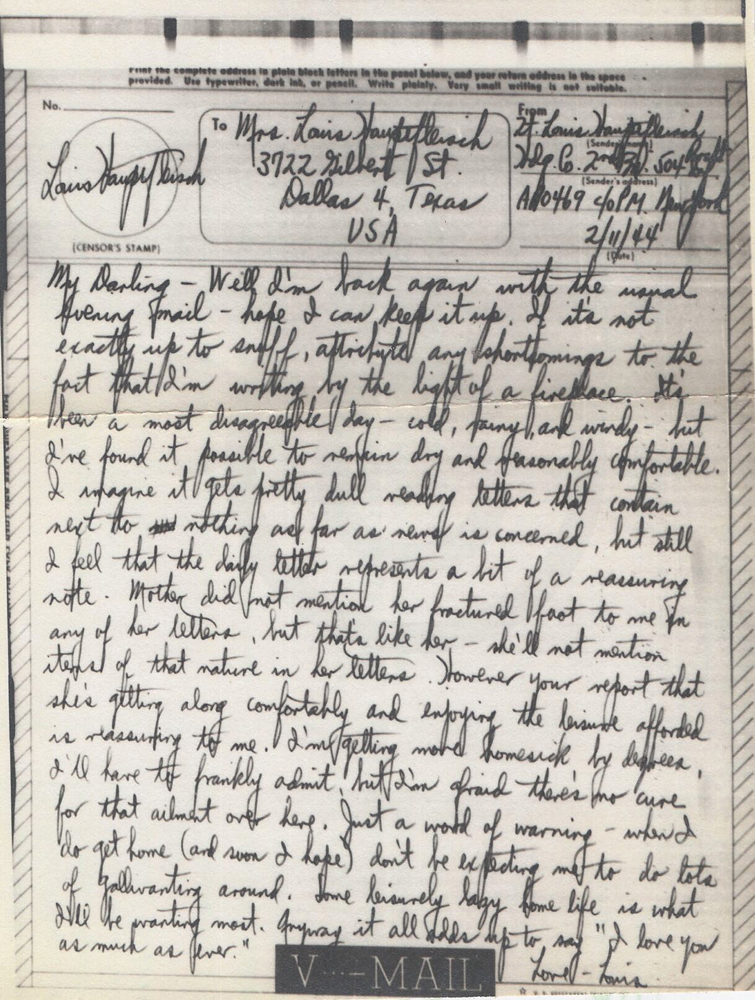 Print the complete address in plain block letters in the panel below, and your return address in the space
provided. Use typewriter, dark ink, or pencil. Write plainly. Very small writing is not suitable.
No.
Louis Hauptfleisch
(CENSOR'S STAMP)
To Mrs. Louis Hauptfleisch
3722 Gilbert St.
Dallas 4, Texas
USA
From
Lt. Louis Hauptfleisch
(Sender's name)
Hdq. Co. 2nd Bn. 504
(Sender's address)
APO469 c/o P.M. New York
2/11/44
(Date)
My Darling - Well I'm back again with the usual
evening mail - hope I can keep it up. If it's not
exactly up to snuff, attribute any shortcomings to the
fact that I'm writing by the light of a fireplace. It's
been a most disagreeable day - cold, rainy, and windy - but
I've found it possible to remain dry and reasonably comfortable.
I imagine it gets pretty dull reading letters that contain
next to nothing as far as news is concerned, but still
I feel that the daily letter represents a bit of a reassuring
note. Mother did not mention her fractured foot to me in
any of her letters, but that's like her - she'll not mention
items of that nature in her letters. However your report that
she's getting along comfortably and enjoying the leisure afforded
is reassuring to me. I'm getting more homesick by degrees,
I'll have to frankly admit, but I'm afraid there's no cure
for that ailment over here. Just a word of warning - when I
do get home (and soon I hope) don't be expecting me to do lots
of gallivanting around. Some leisurely lazy home life is what
I'll be wanting most. Anyway it all adds up to, say "I love you
as much as ever."
Love - Louis
V···—MAIL